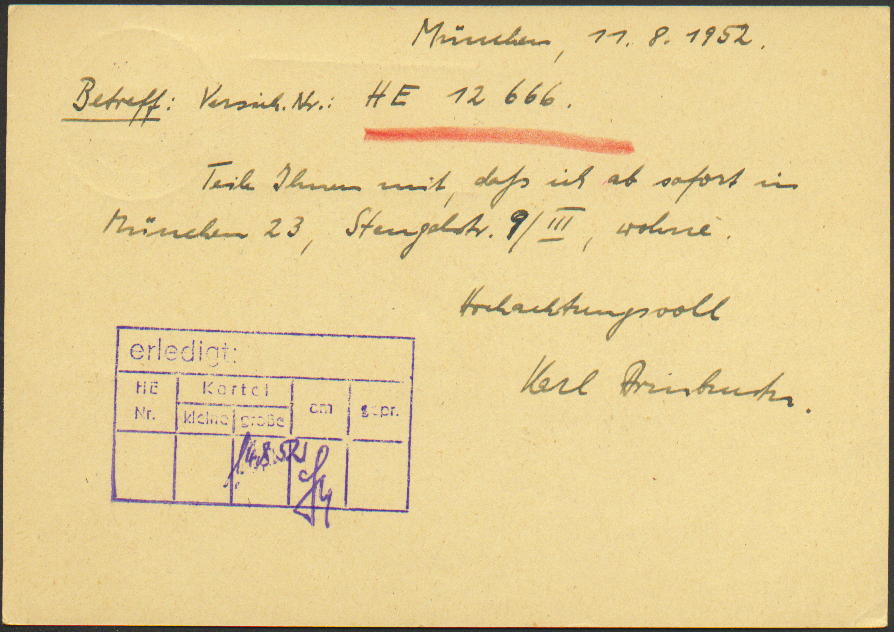 München, 11. 8. 1952.
Betreff: Versich. Nr.: HE 12 666.
Teile Ihnen mit, daß ich ab sofort in
München 23, Stengelstr. 9/III, wohne.
Hochachtungsvoll
Karl
erledigt:
HE Nr. Kartei am gepr.
kleine große
14.8.52